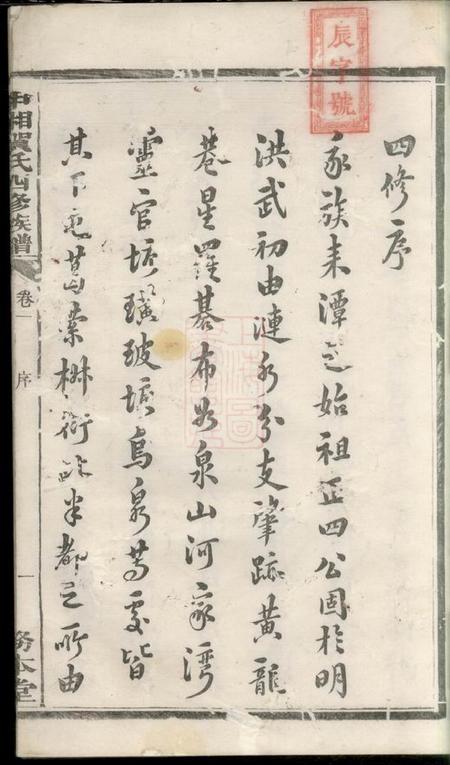 辰字號
四修序
家族來潭之始祖正四公固於明
洪武初由漣水分支肇跡黃龍
巷星羅碁布如泉山河家灣
靈官坼璜玻塘烏泉等處皆
其下也葛藟椒衍跡半都之所由
中湘賀氏四修族譜
卷一
序
一
務本堂